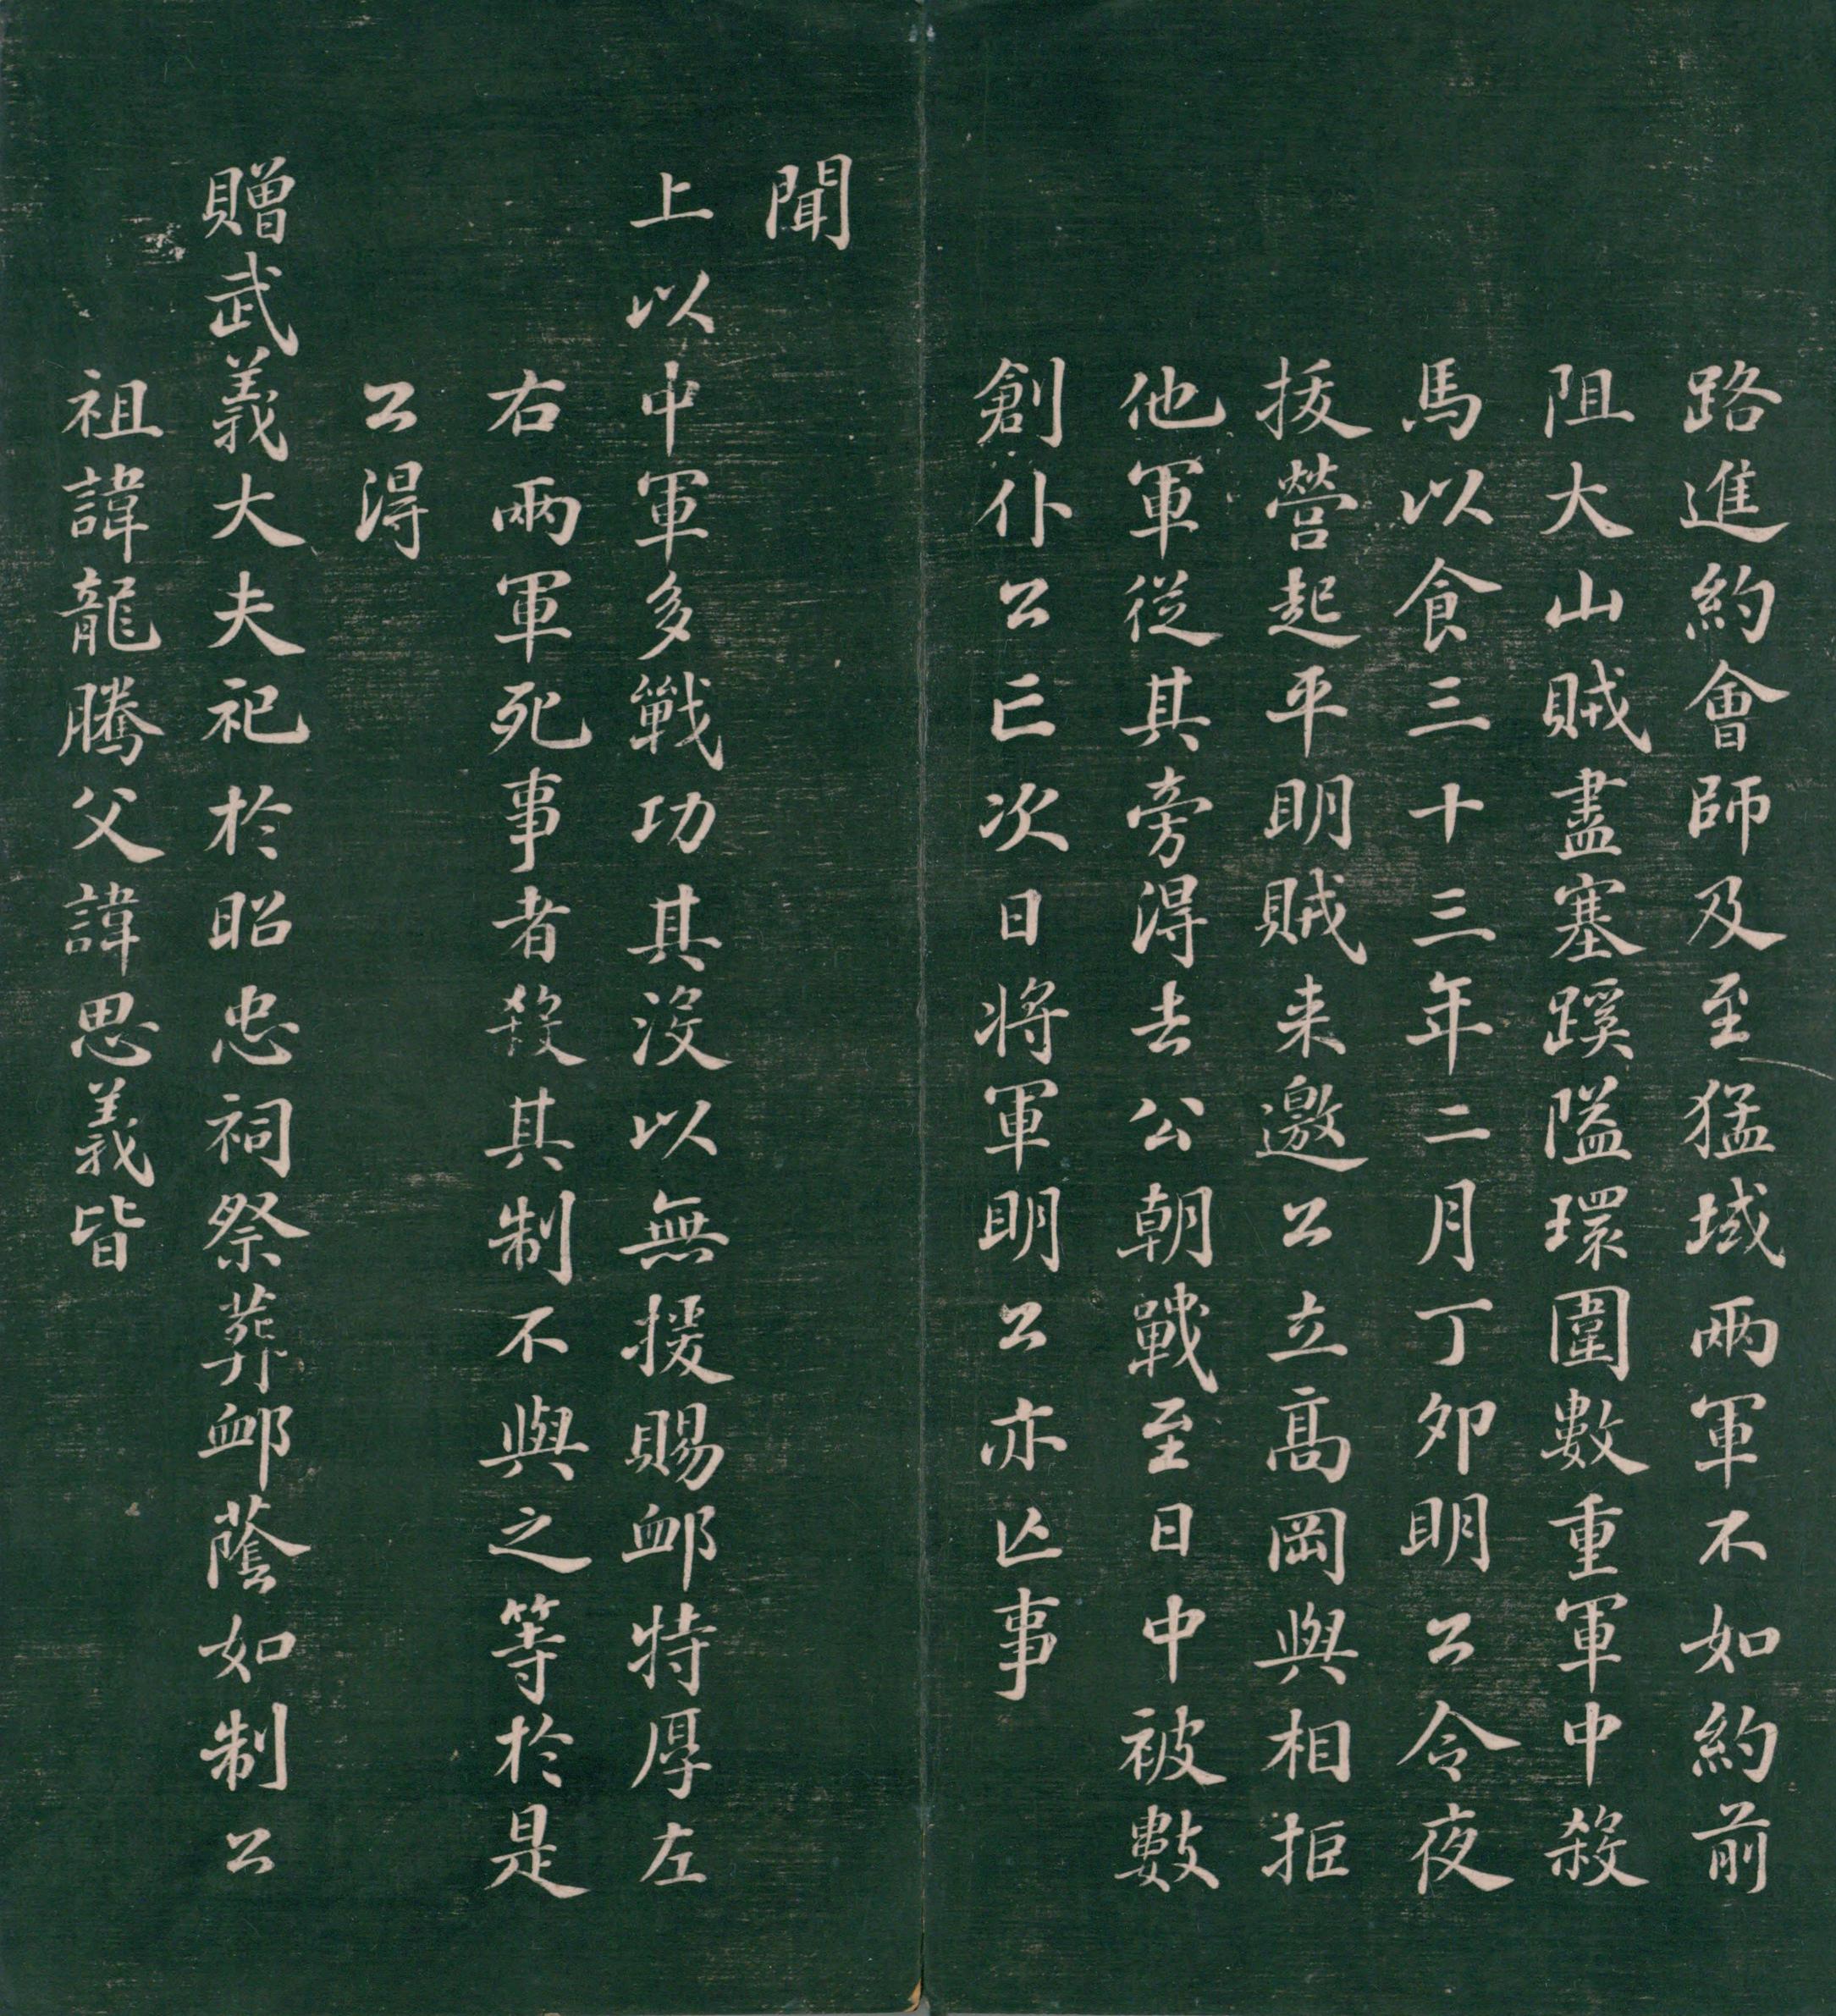 路進約會師及至猛域兩軍不如約前
阻大山賊盡塞蹊隘環圍數重軍中殺
馬以食三十三年二月丁卯明公令夜
拔營起平明賊来邀公立髙岡與相拒
他軍從其旁得去公朝戰至日中被數
創仆公亡次日将軍明公亦亡事
聞
上以中軍多戰功其没以無援賜卹特厚左
右兩軍死事者殺其制不與之等於是
公得
贈武義大夫祀於昭忠祠祭葬卹蔭如制公
祖諱龍騰父諱思義皆